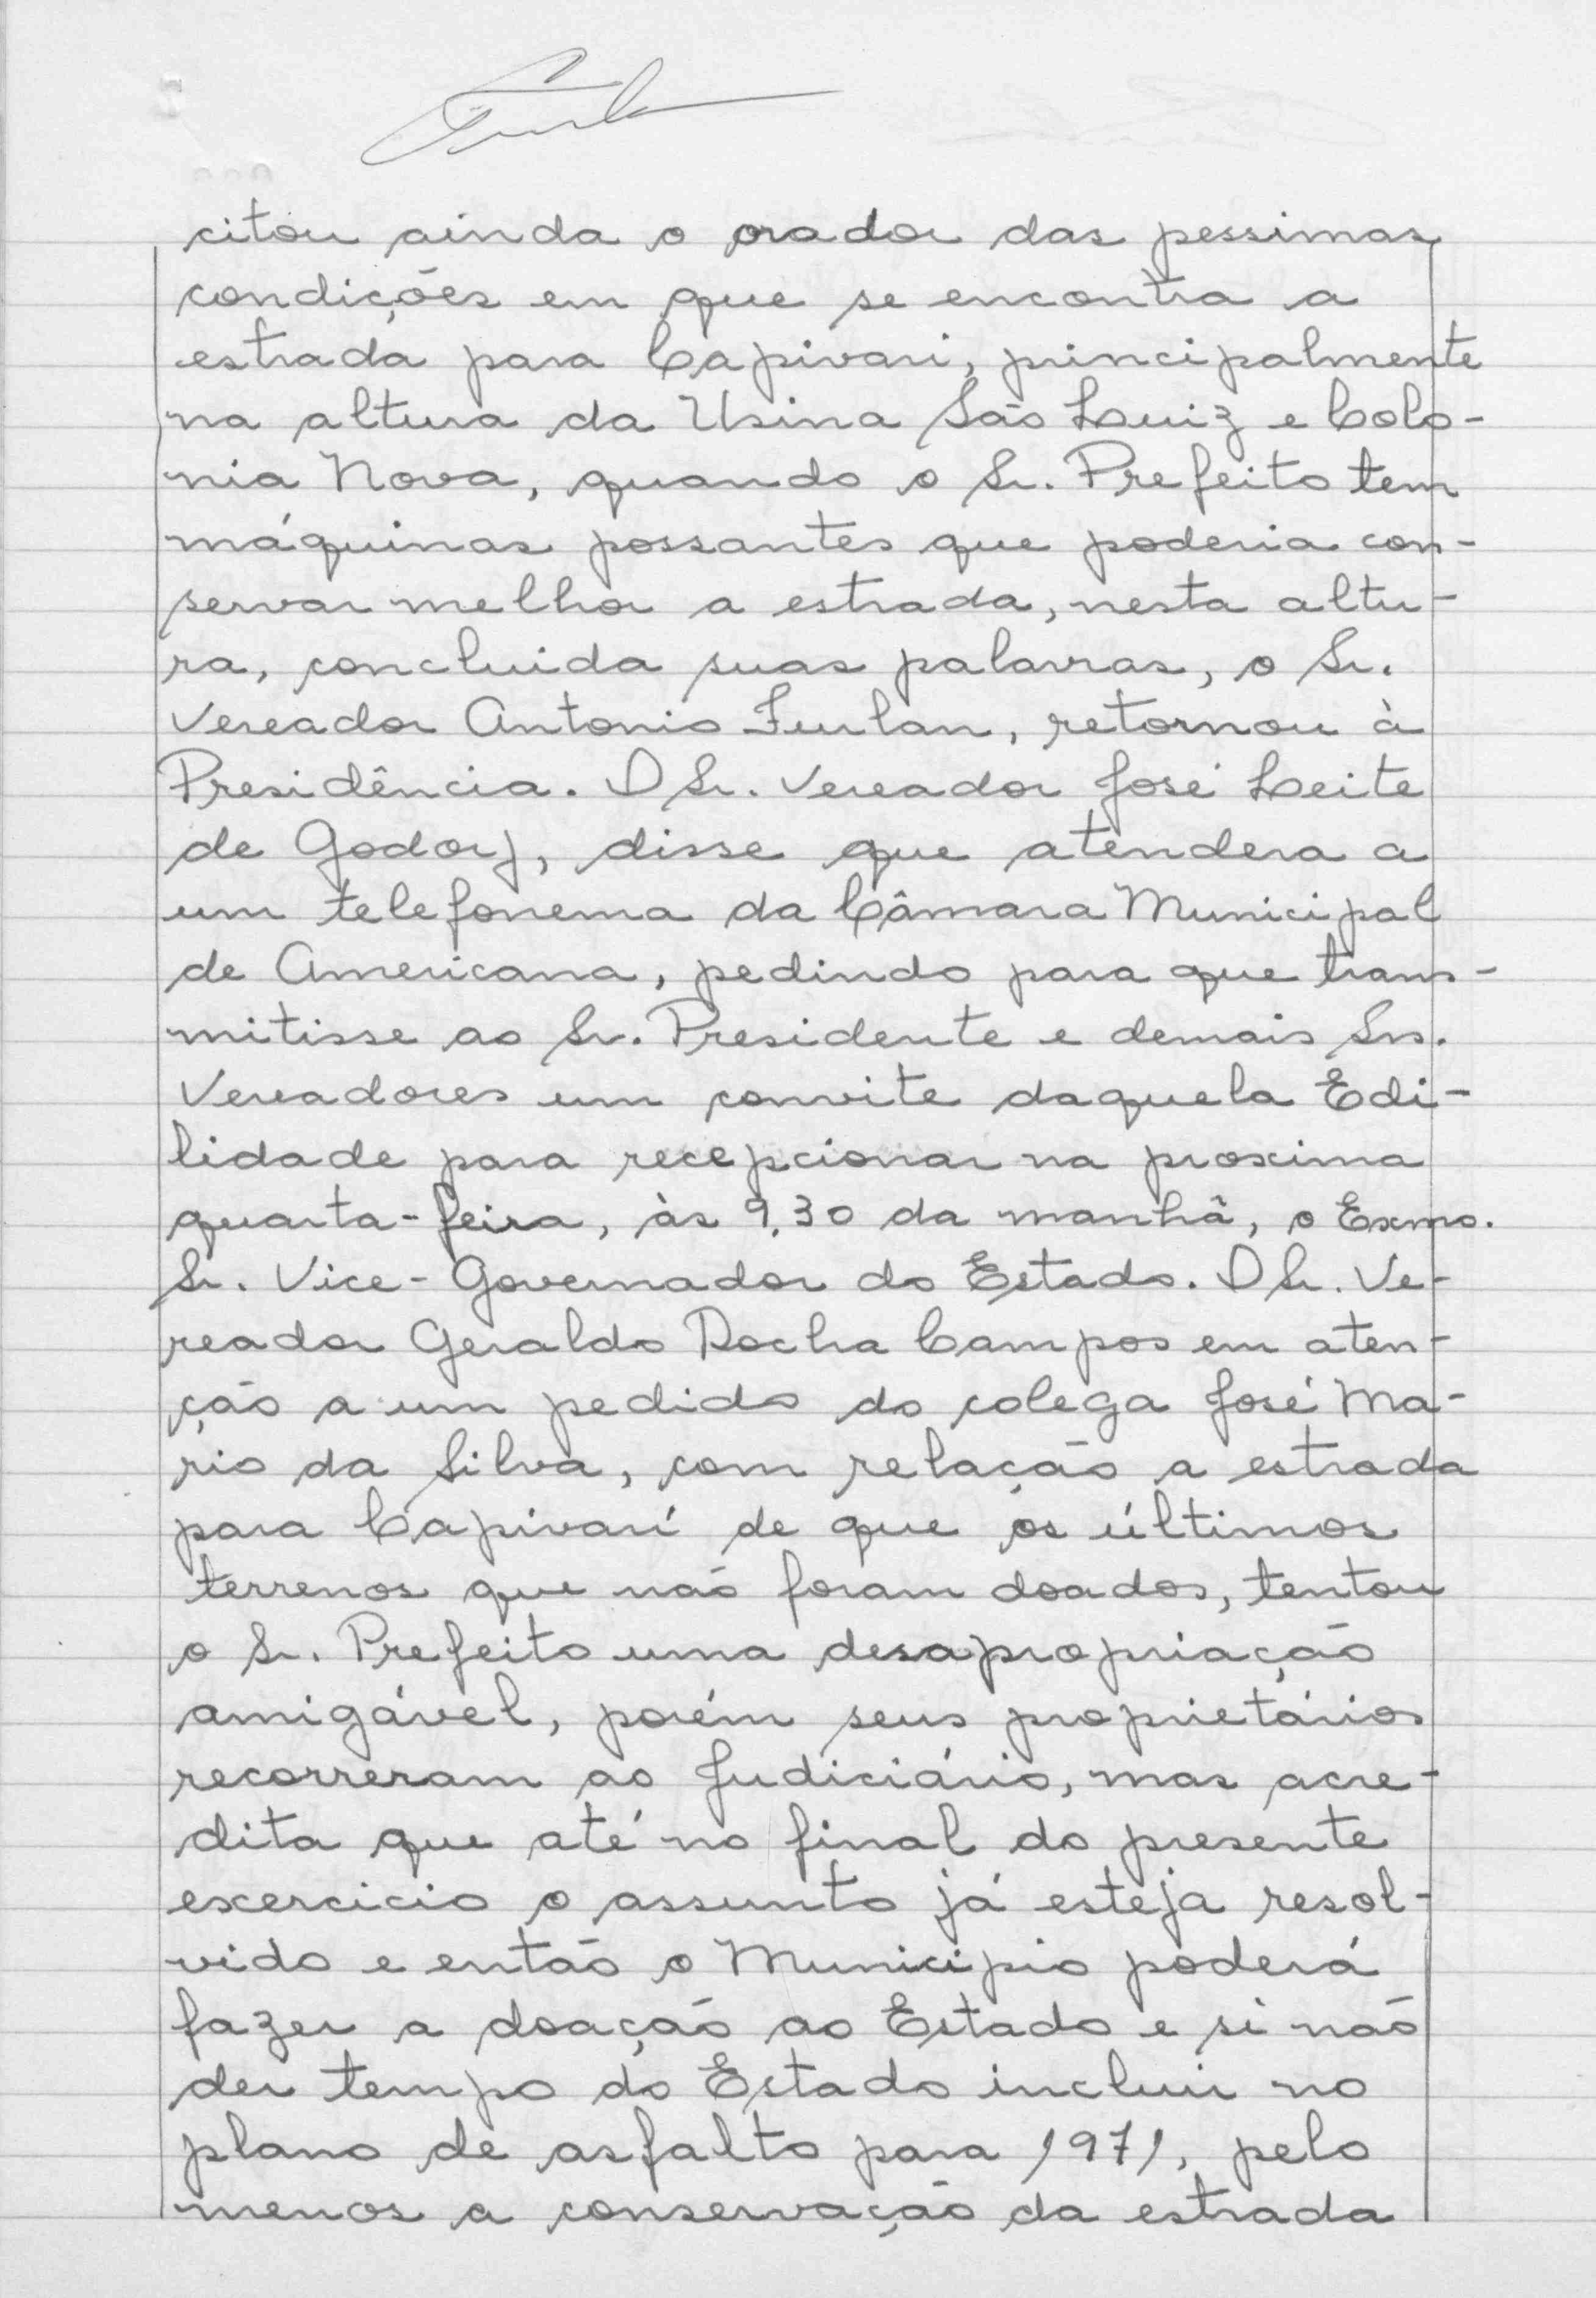 citou ainda o orador das pessimas
condições em que se encontra a
estrada para Capivari, principalmente
na altura da Usina São Luiz e Colo-
nia Nova, quando o Sr. Prefeito tem
máquinas possantes que poderia con-
servar melhor a estrada, nesta altu-
ra, concluida suas palavras, o Sr.
Vereador Antonio Furlan, retornou à
Presidência. O Sr. Vereador José Leite
de Godoy, disse que atendera a
um telefonema da Câmara Municipal
de Americana, pedindo para que trans-
mitisse ao Sr. Presidente e demais Srs.
Vereadores um convite daquela Edi-
lidade para recepcionar na proxima
quarta-feira, às 9,30 da manhã, o Exmo.
Sr. Vice-Governador do Estado. O Sr. Ve-
reador Geraldo Rocha Campos em aten-
ção a um pedido do colega José Ma-
rio da Silva, com relação a estrada
para Capivarí de que os últimos
terrenos que não foram doados, tentou
o Sr. Prefeito uma desapropriação
amigável, porém seus proprietários
recorreram ao Judiciário, mas acre-
dita que até no final do presente
exercicio o assunto já esteja resol-
vido e então o Municipio poderá
fazer a doação ao Estado e si não
der tempo do Estado incluir no
plano de asfalto para 1971, pelo
menos a conservação da estrada